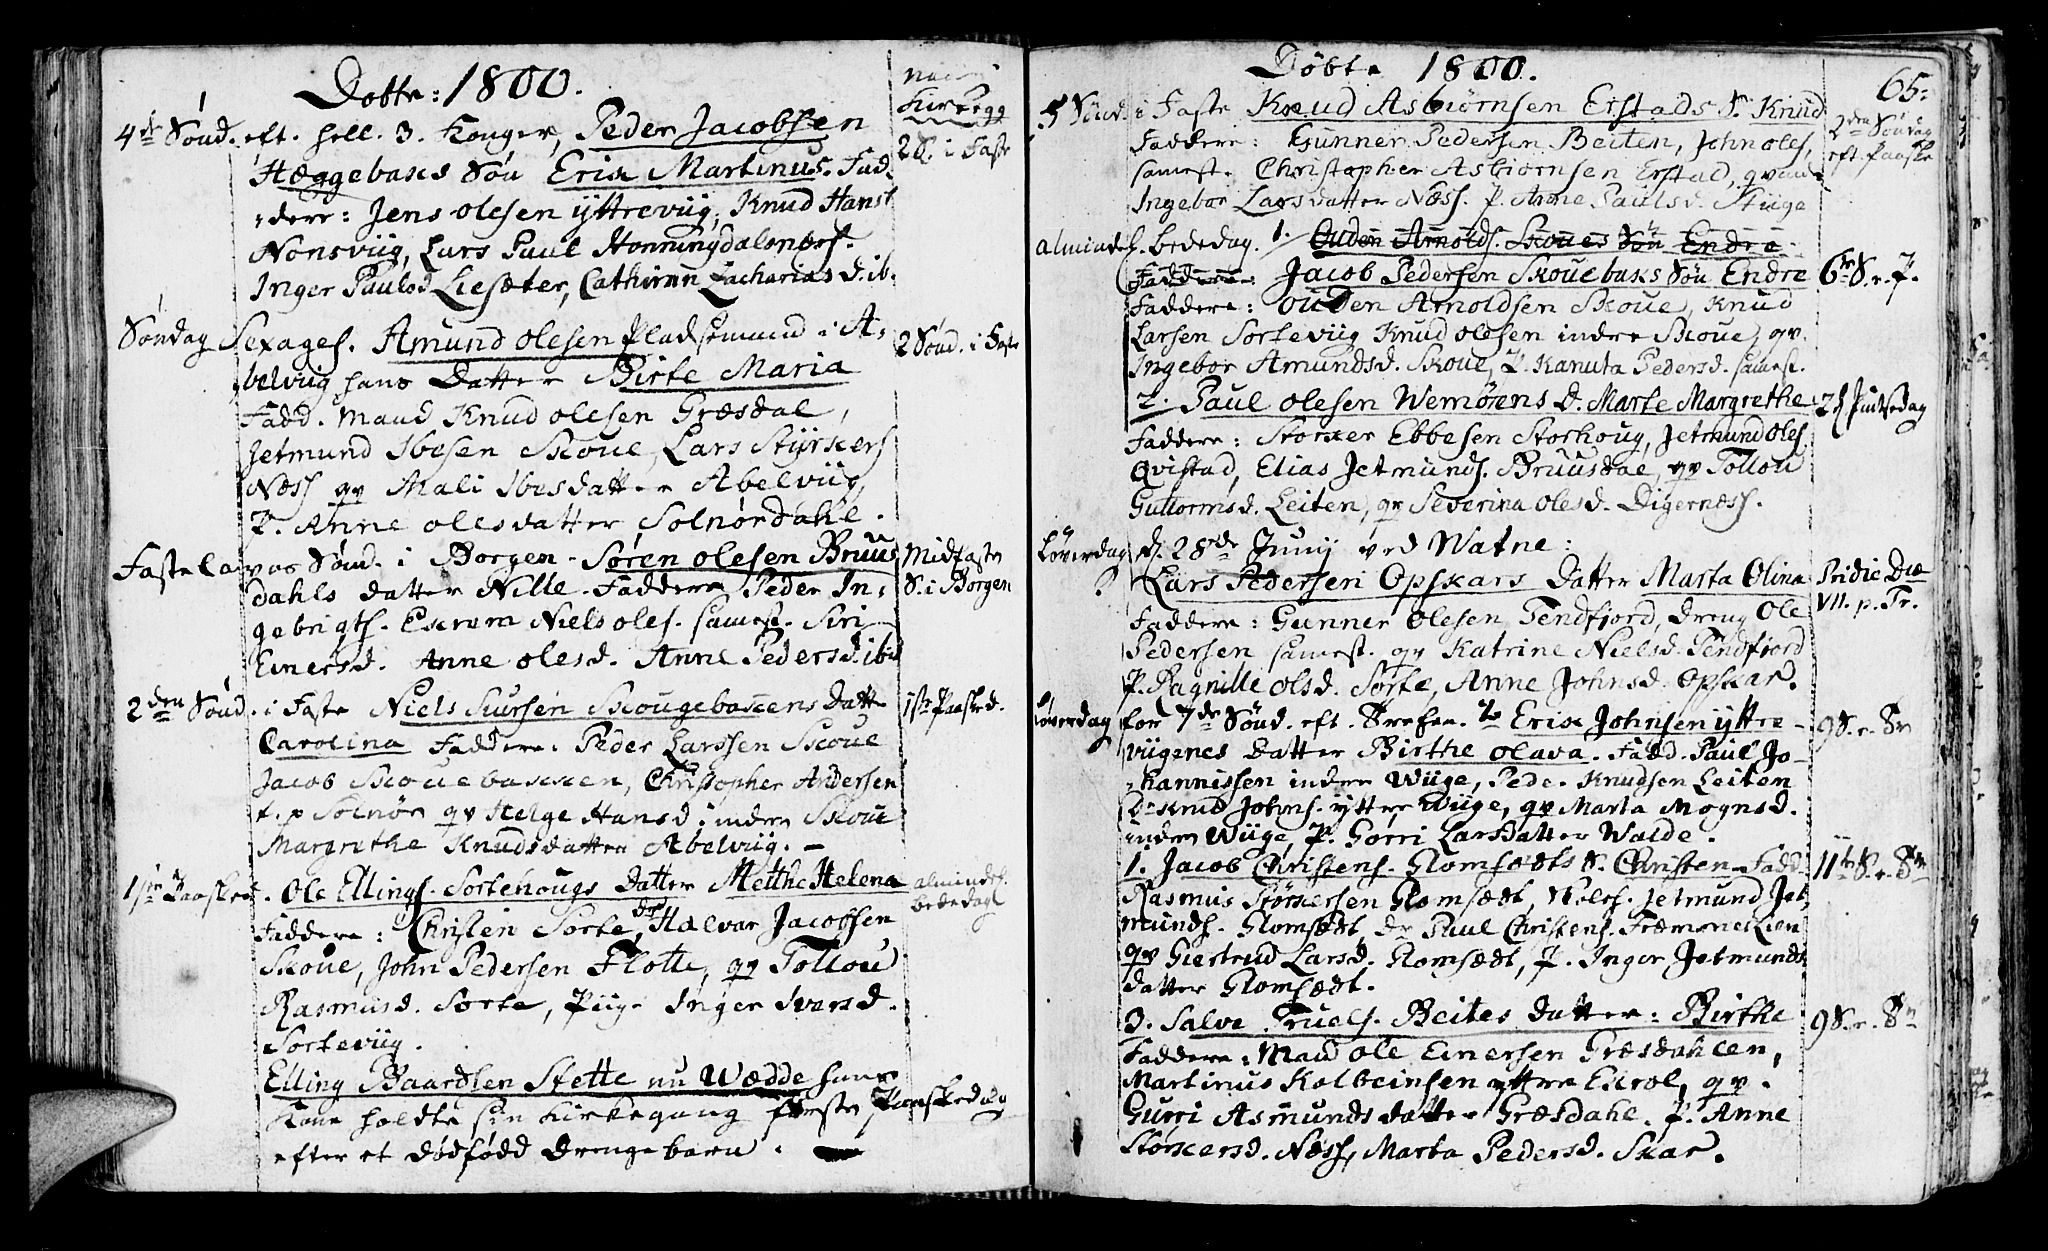 Døbte: 1800.
Kirkegg
4de Sønd. eft. hell. 3. Konger, Peder Jacobsen
2 S. i Faste
Hæggebaks Søn Erik Martinus. Fad-
dere: Jens olesen yttreviig, Knud Hans.
Nonsviig, Lars Paul Honningdalsnæss.
Inger Paulsd. Liesæter, Cathrin Zacharias d. ib.
Søndag Sexages. Amund olesen Pladsemand i A-
2 Sønd. i Faste
belviig hans Datter Birte Maria
Fadd. Mand Knud olesen Græsdal,
Jetmund Ibesen Skoue, Lars Styrkers
Næss qv Mali Ibesdatter Abelviig,
P. Anne olesdatter Solnørdahl.
Fastelavns Sønd. i Borgen - Søren olesen Bruus
Midfaste
S. i Borgen
dahls datter Nille. Faddere Peder In-
gebrigts. Ekrem Niels oles. samest. Siri
Einersd. Anne olesd. Anne Pedersd. ibid
2den Sønd. i Faste Niels Siursen Skougebakkens Datt.
1ste Paasked.
Carolina Faddere: Peder Larssen Skoue
Jacob Skouebakken, Christopher Andersen
t. p Solnør qv Helge Hansd: indre Skoue
Margrethe Knudsdatter Abelviig. -
1ste Paasked. Ole Ellings. Sortehougs datter Metthe Helena
almindel.
bededag
Faddere: Christen Sorte, Halvor Jacobsen
Skoue, John Pedersen Flotte, qv Tollou
Rasmusd. Sorte, Piige Inger Iversd.
Sorteviig.
Elling Baardsen Stette nu Wædde hans
Kone holdte sin kirkegang første Paaskedag
efter et dødfødd drengebarn.
Døbte 1800.
65:
5 Sønd. i Faste Knud Asbiørnsen Erstads S. Knud
2den Søndag
eft. Paaske
Faddere: Gunner Pedersen Beiten, John oles,
samest. Christopher Asbiørnsen Erstad, qvind
Ingebor Larsdatter Næss. P. Anne Paulsd. Stiige
almindel. bededag. 1. Ouden Arnolds. Skoues Søn Endre
Faddere: Jacob Pedersen Skouebaks Søn Endre
6te S. e. P.
Faddere: Ouden Arnoldsen Skoue, Knud
Larsen Sorteviig Knud olesen indre Skoue, qv.
Ingebor Amundsd. Skoue, P. Kanuta Pedersd. samest.
2. Paul olesen Wemørens D. Marte Margrethe
2d Pintsedag
Faddere: Størker Ebbesen Storhoug, Jetmund oles.
Qvistad, Elias Jetmunds. Bruusdal, qv Tollou
Guttormsd. Leiten, qv Severina olesd. Digernæss.
Løverdag d. 28de Junij ved Watne:
Lars Pedersen Opskars Datter Marta Olina
Pridie Dæ
VII. p. Tr.
Faddere: Gunner olesen Tendfjord, dreng Ole
Pedersen samest. qv Katrine Nielsd. Tendfjord
P. Ragnille olsd. Sorte, Anne Johnsd. Opskar.
Løverdag for 7de Sønd. eft. Trefse. Erik Johnsen yttre-
9 S. e. Tr
viigenes datter Birthe olava. Fadd. Paul Jo-
hannissen indre Wiige, Peder Knudsen Leiten
Knud Johns. yttre Wiige, qv Marta Mognsd.
indre Wiige, P. Gorri Larsdatter Walde.
1. Jacob Christens. Glomsædts S. Christen - Fadd
11te S. e. Tr
Rasmus Størkersen Glomsædt, Niels. Jetmund Jet
munds. Glomsædt, Paul Christens. Fræmmerlien
qv Giertrud Larsd. Glomsædt, P. Inger Jetmunds
datter Glomsædt.
3. Salve Truels. Beites datter: Birthe
9 S. e. Tr
Faddere: Mand ole Einersen Græsdahlen,
Martinus Kolbeinsen yttre Ekrol, qv.
Gurri Asmundsdatter Græsdahl. P. Anne
Størkersd. Næss, Marta Pedersd. Skar.